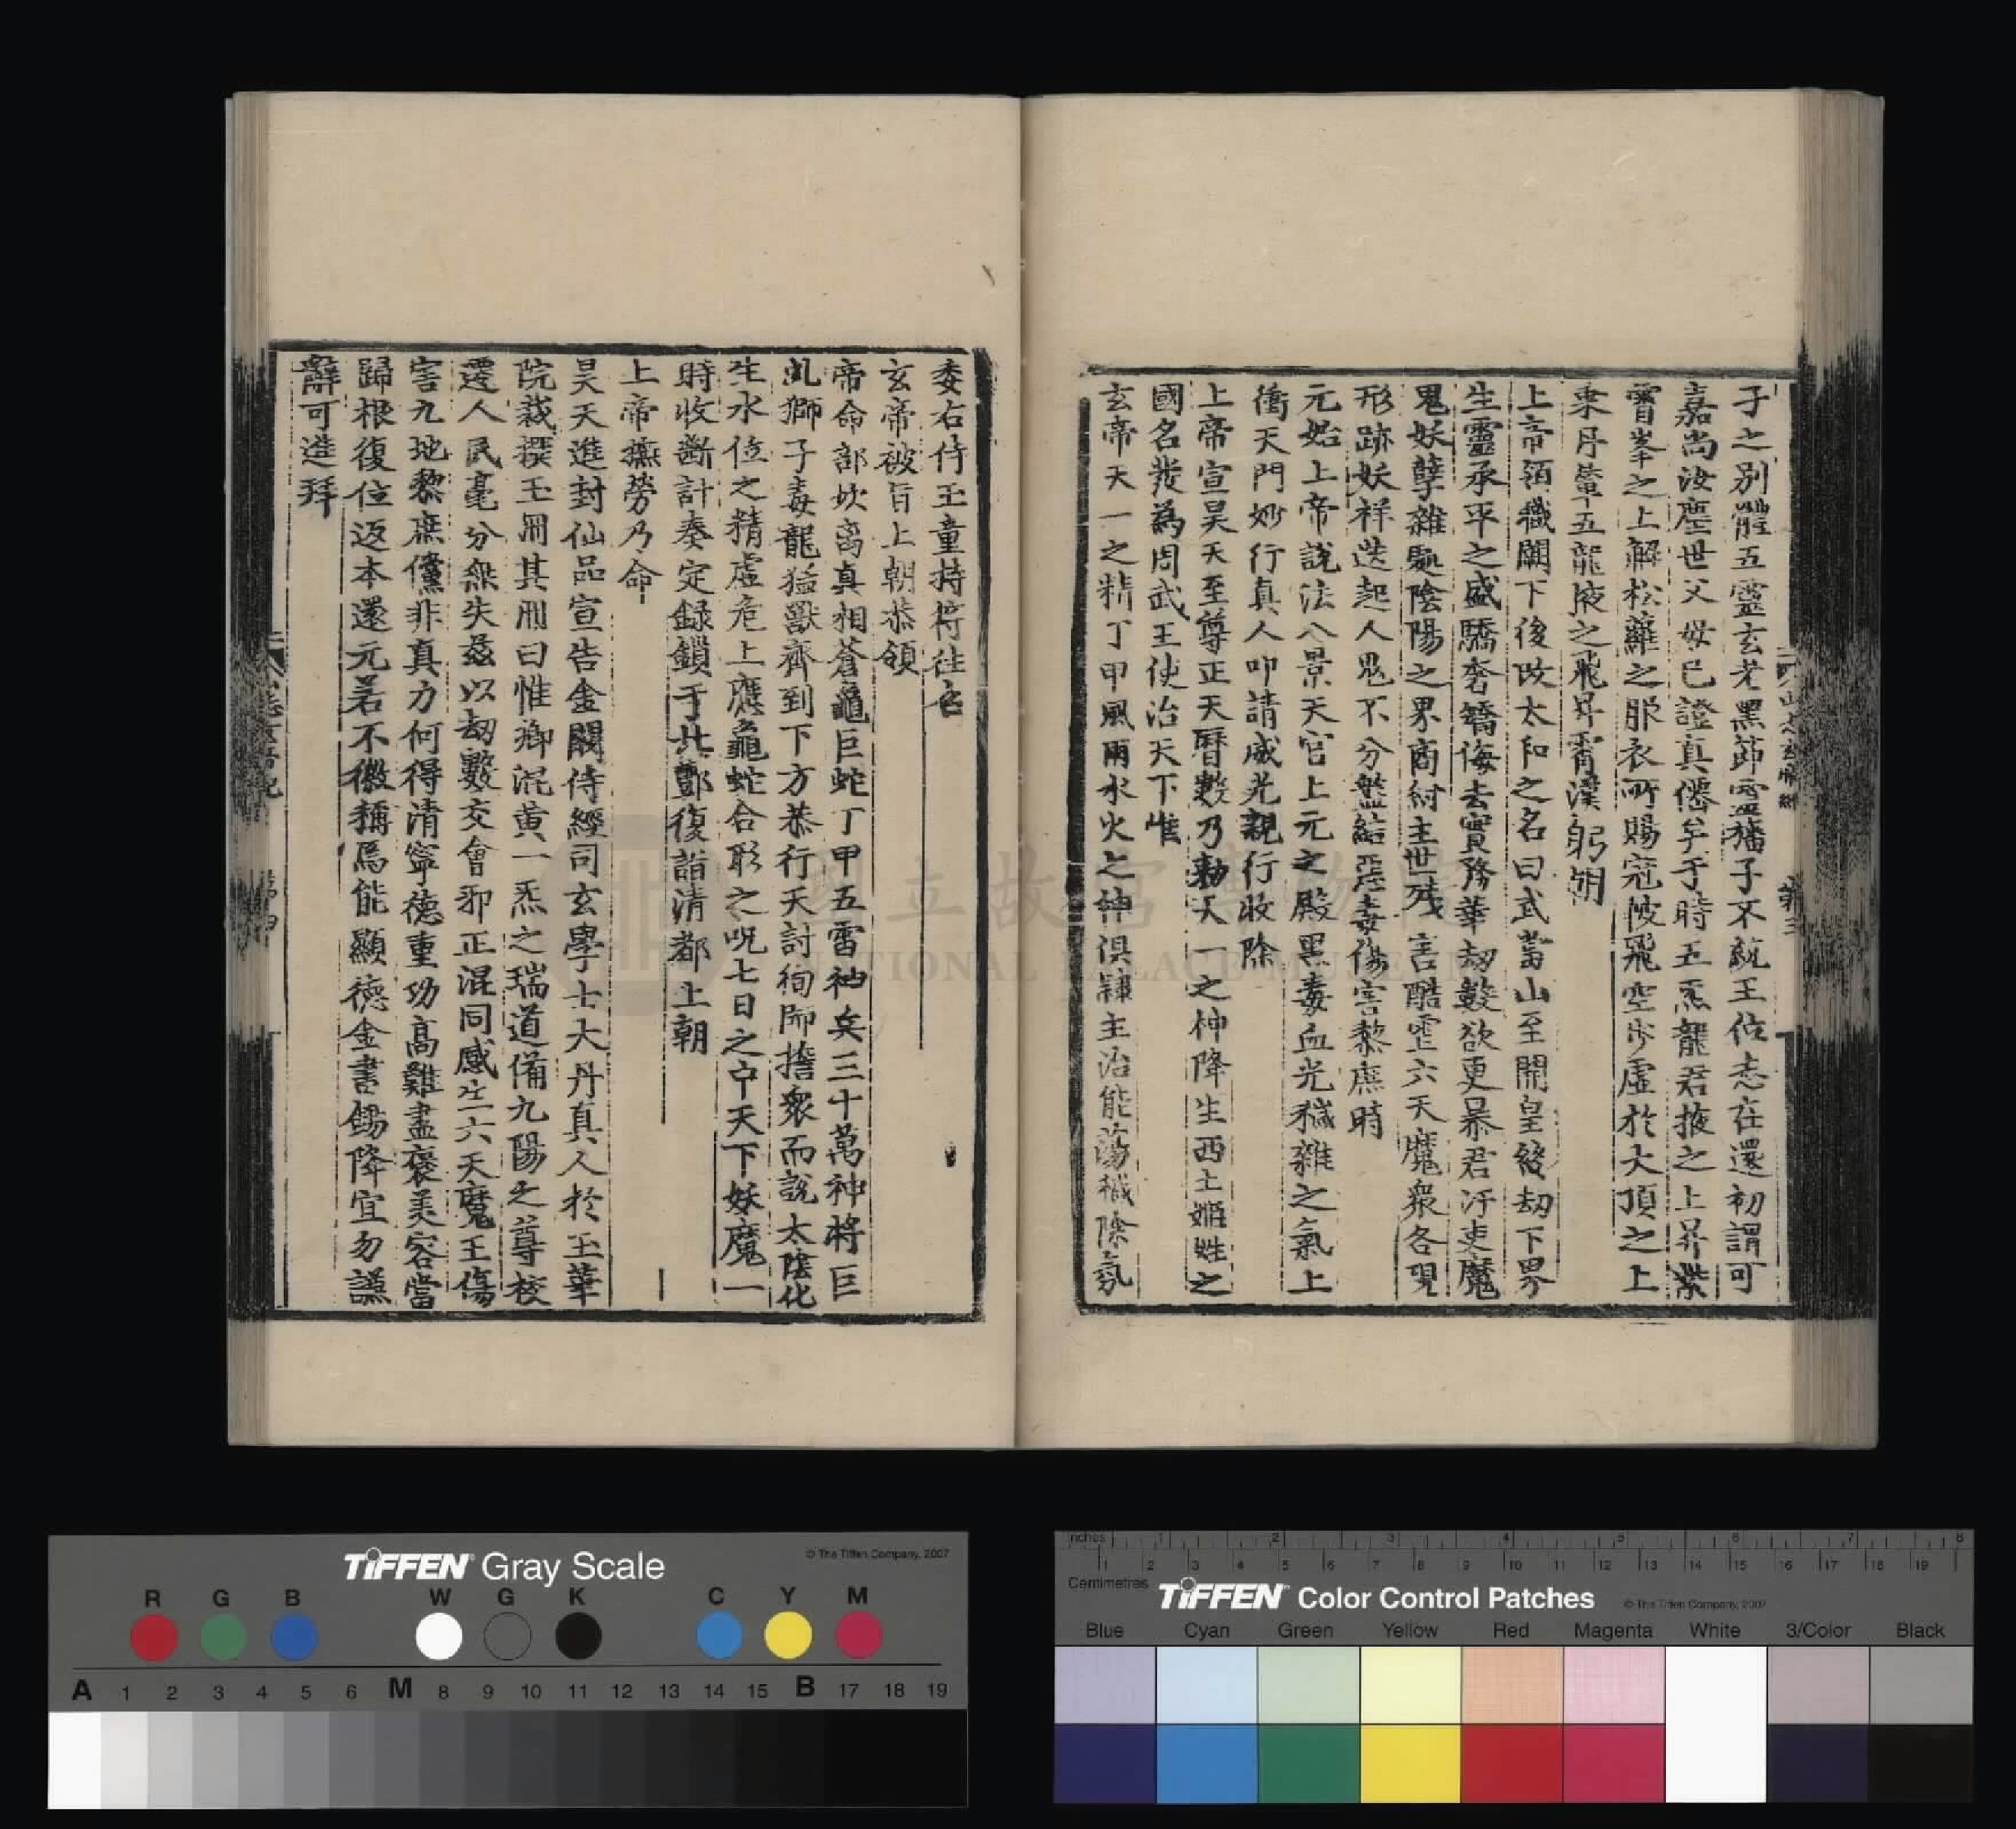 子之别體五靈玄老黑節靈播子不統王位志在還初謂可
嘉尚汝塵世父母已證真僊矣于時五炁龍君掖之上昇紫
霄峯之上解松蘿之服衣所賜冠帔飛空步虛於大頂之上
乗丹輦五龍掖之飛昇霄漢躬朝
上帝領職闕下後改太和之名曰武當山至開皇終劫下界
生靈承平之盛驕奢矯侮去實務華劫數欲更暴君汙吏魔
鬼妖孽雜處陰陽之界商紂主世殘害酷虐六天魔衆各現
形跡妖祥迭起人鬼不分盤結惡毒傷害黎庶時
元始上帝說法八景天宮上元之殿黑毒血光穢雜之氣上
衝天門妙行真人叩請威光親行收除
上帝宣昊天至尊正天曆數乃勅天一之神降生西土姬姓之
國名發為周武王使治天下惟
玄帝天一之精丁甲風雨水火之神俱隸主治能蕩穢除氛
委右侍玉童持符往召
玄帝被旨上朝恭領
帝命部坎离真相蒼龜巨蛇丁甲五雷神兵三十萬神將巨
虬獅子毒龍猛獸齊到下方恭行天討徇師擔衆而說太陰化
生水位之精虛危上應龜蛇合形之呪七日之中天下妖魔一
時收斷計奏定録鎖于北酆復詣清都上朝
上帝撫勞乃命
昊天進封仙品宣告金闕侍經司玄學士大丹真人於玉華
院裁撰玉冊其冊曰惟卿混黄一炁之瑞道備九陽之尊校
遷人民毫分無失茲以劫數交會邪正混同感生六天魔王傷
害九地黎庶儻非真力何得清寧德重功高難盡褒美容當
歸根復位返本還元若不徽稱焉能顯德金書錫降宜勿謙
辭可進拜
國立故宮博物院
NATIONAL PALACE MUSEUM
TIFFEN Gray Scale
© The Tiffen Company, 2007
R G B W G K C Y M
A 1 2 3 4 5 6 M 8 9 10 11 12 13 14 15 B 17 18 19
inches 1 2 3 4 5 6 7 8
Centimetres 1 2 3 4 5 6 7 8 9 10 11 12 13 14 15 16 17 18 19
TIFFEN Color Control Patches
© The Tiffen Company, 2007
Blue Cyan Green Yellow Red Magenta White 3/Color Black